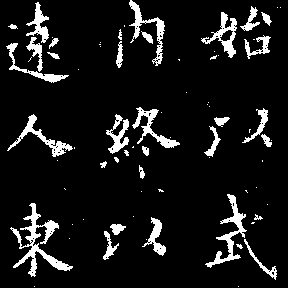 始以武
内終以
遠人東